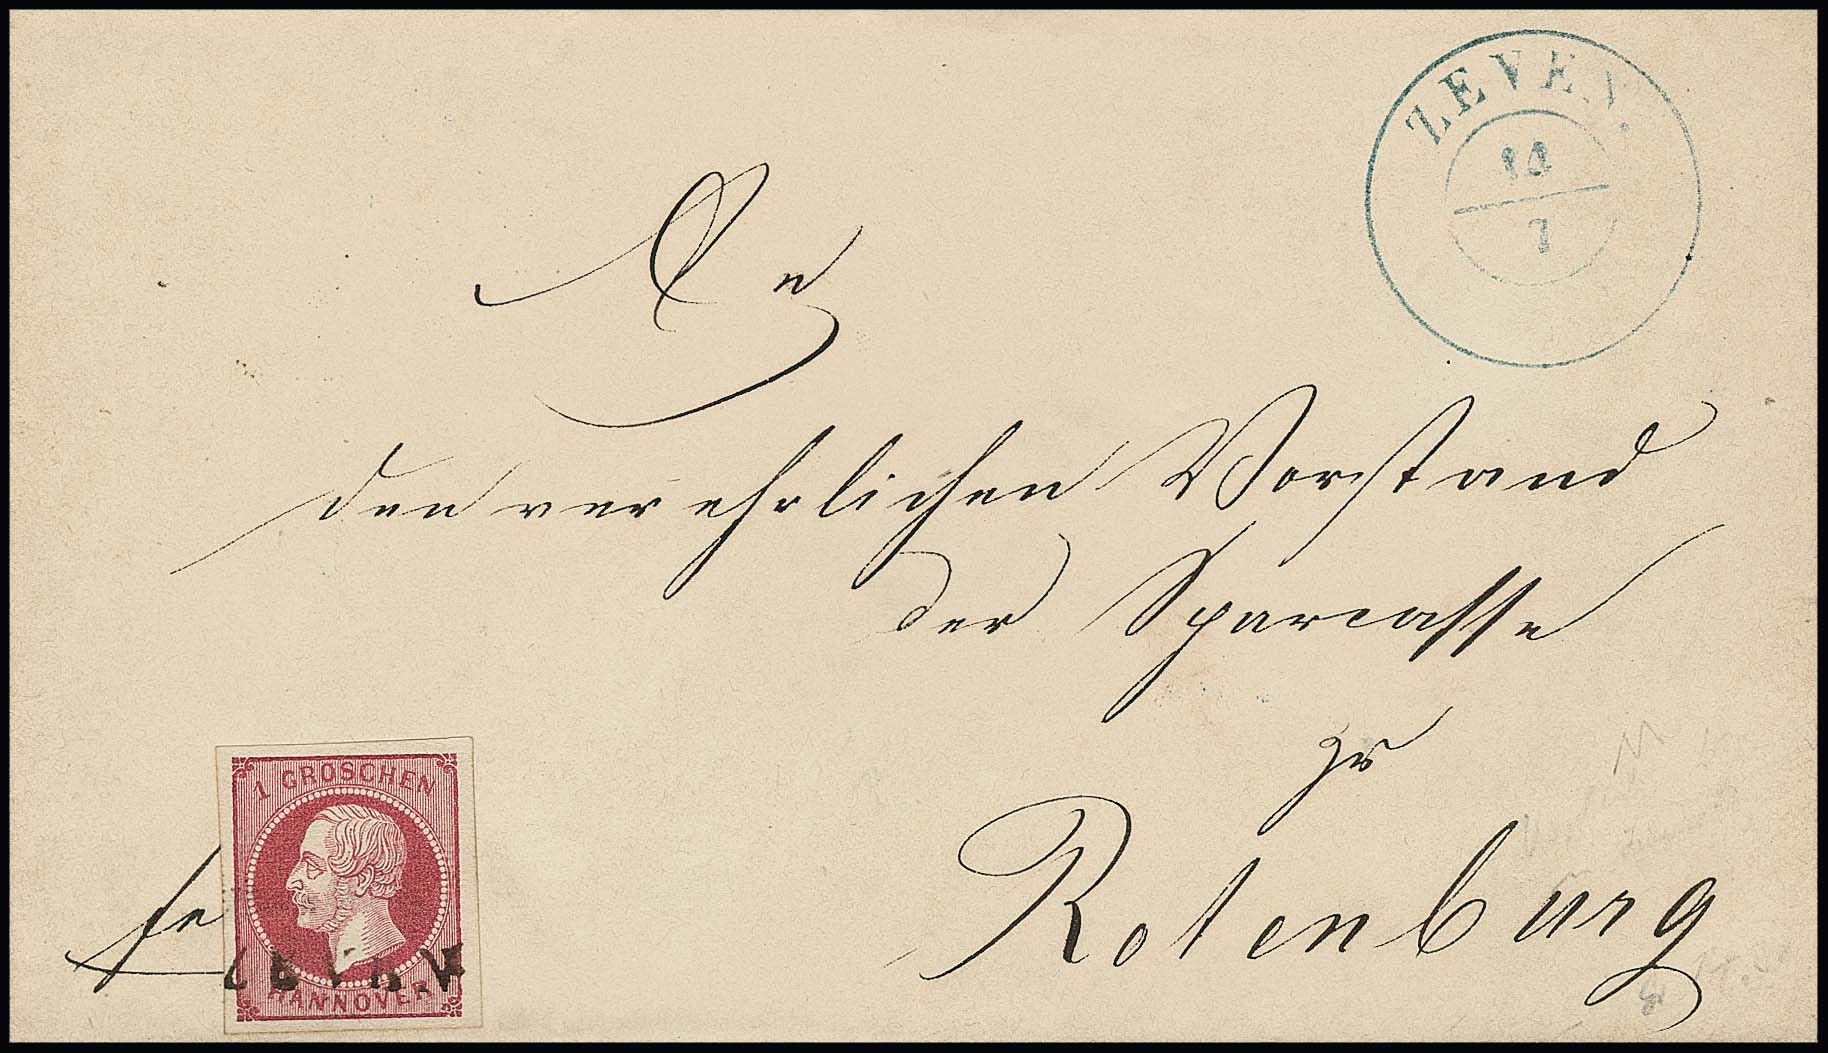 ZEVEN.
14
7
An
den verehrlichen Vorstand
der Sparcasse
zu
Rotenburg
fr
1 GROSCHEN
HANNOVER
ZEVEN